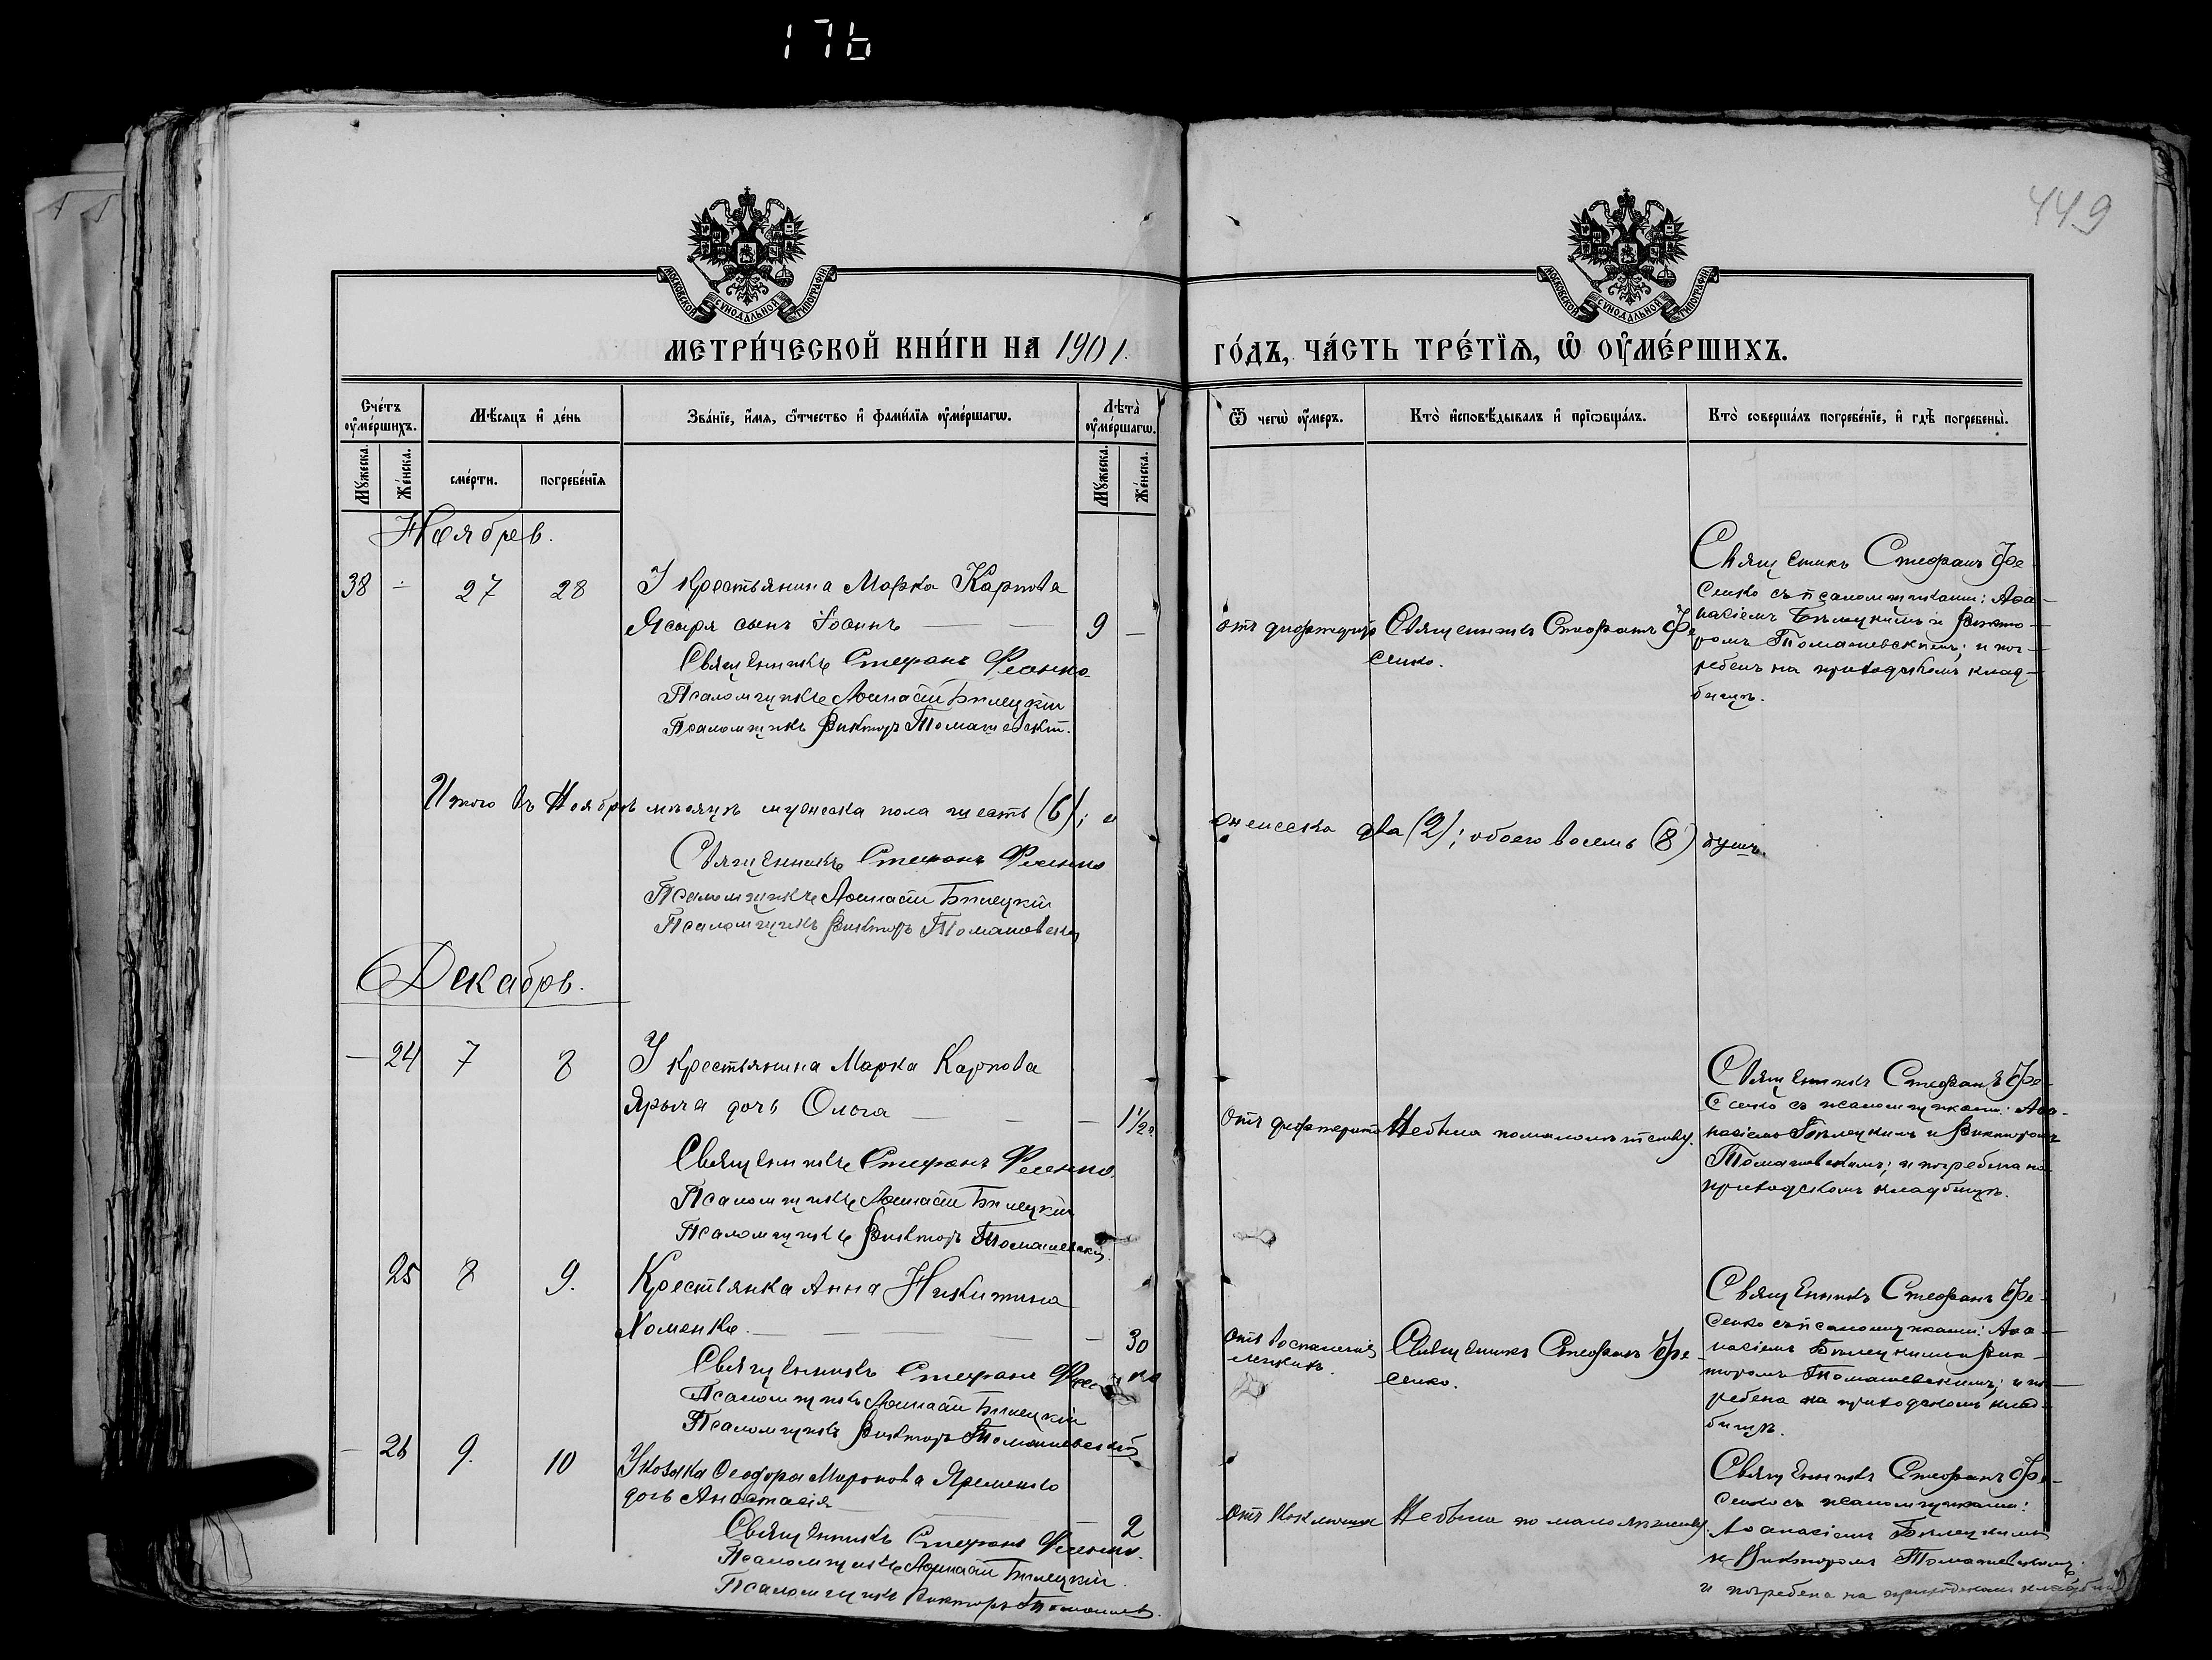 176
449
МОСКОВСКОЙ СѴНОДАЛЬНОЙ ТИПОГРАФІИ
МОСКОВСКОЙ СѴНОДАЛЬНОЙ ТИПОГРАФІИ
МЕТРИ́ЧЕСКОЙ КНИ́ГИ НА 1901. ГО́ДЪ, ЧА́СТЬ ТРЕ́ТЇѦ, Ѡ҆ ОУ҆МЕ́РШИХЪ.
Сче́тъ оу҆ме́ршихъ.
Мꙋ́жеска.
Же́нска.
Мѣ́сѧцъ и҆ де́нь
сме́рти.
погребе́нїѧ
Зва́нїе, и҆́мѧ, ѻ҆́тчество и҆ фами́лїѧ оу҆ме́ршагѡ.
Лѣ́та оу҆ме́ршагѡ.
Мꙋ́жеска.
Же́нска.
Ѿ чегѡ̀ оу҆́меръ.
Кто̀ и҆сповѣ́дывалъ и҆ прїѡбща́лъ.
Кто̀ соверша́лъ погребе́нїе, и҆ гдѣ̀ погребены̀.
Ноябрь.
38 - 27 28 У крестьянина Марка Карпова
Ясыря сынъ Іоаннъ — — 9 —
Священникъ Стефанъ Фесенко
Псаломщикъ Аѳанасій Бѣлецкій
Псаломщикъ Викторъ Томашевскій.
отъ дифтерита
Священникъ Стефанъ Фе-
сенко.
Священникъ Стефанъ Фе-
сенко съ псаломщиками: Аѳа-
насіемъ Бѣлецкимъ и Викто-
ромъ Томашевскимъ; и пог-
ребенъ на приходскомъ клад-
бищѣ.
Итого въ Ноябрѣ мѣсяцѣ мужеска пола шесть (6); и женска два (2); обоего восемь (8) душъ.
Священникъ Стефанъ Фесенко
Псаломщикъ Аѳанасій Бѣлецкій
Псаломщикъ Викторъ Томашевскій
Декабрь.
— 24 7 8 У крестьянина Марка Карпова
дочь Ольга — — 1½
Священникъ Стефанъ Фесенко.
Псаломщикъ Аѳанасій Бѣлецкій
Псаломщикъ Викторъ Томашевскій.
Отъ дифтерита
Не была по малолѣтству.
Священникъ Стефанъ Фе-
сенко съ псаломщиками: Аѳа-
насіемъ Бѣлецкимъ и Викторомъ
Томашевскимъ; и погребена на
приходскомъ кладбищѣ.
25 8 9. Крестьянка Анна Никитина
Хоменко. — — — — 30
Священникъ Стефанъ Фесенко
Псаломщикъ Аѳанасій Бѣлецкій
Псаломщикъ Викторъ Томашевскій
Отъ воспаленія
легкихъ.
Священникъ Стефанъ Фе-
сенко.
Священникъ Стефанъ Фе-
сенко съ псаломщиками: Аѳа-
насіемъ Бѣлецкимъ и Вик-
торомъ Томашевскимъ; и по-
гребена на приходскомъ клад-
бищѣ.
— 26 9. 10 У козака Ѳеодора Миронова Яременко
дочь Анастасія — 2
Священникъ Стефанъ Фесенко.
Псаломщикъ Аѳанасій Бѣлецкій.
Псаломщикъ Викторъ Томашевс.
Отъ коклюша
Не была по малолѣтству.
Священникъ Стефанъ Фе-
сенко съ псаломщиками:
Аѳанасіемъ Бѣлецкимъ
и Викторомъ Томашевскимъ;
и погребена на приходскомъ кладбищѣ